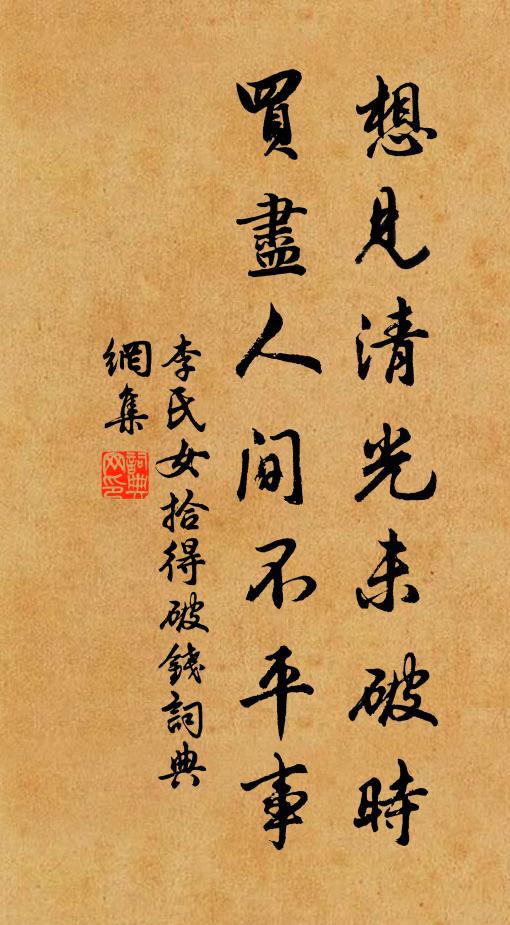 想見清光未破時
買盡人間不平事
李氏女拾得破錢詞典
網集
詞典
网印